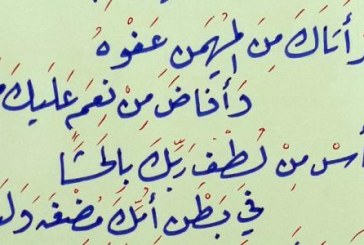 وَأَتَاكَ مِنَ المُهَيْمِنِ عَفْوُهُ
وَأَفَاضَ مِنْ نِعَمٍ عَلَيْكَ
مِنْ لُطْفِ رَبِّكَ بِالحَشَا
فِي بَطْنِ أُمِّكَ مُضْغَةً